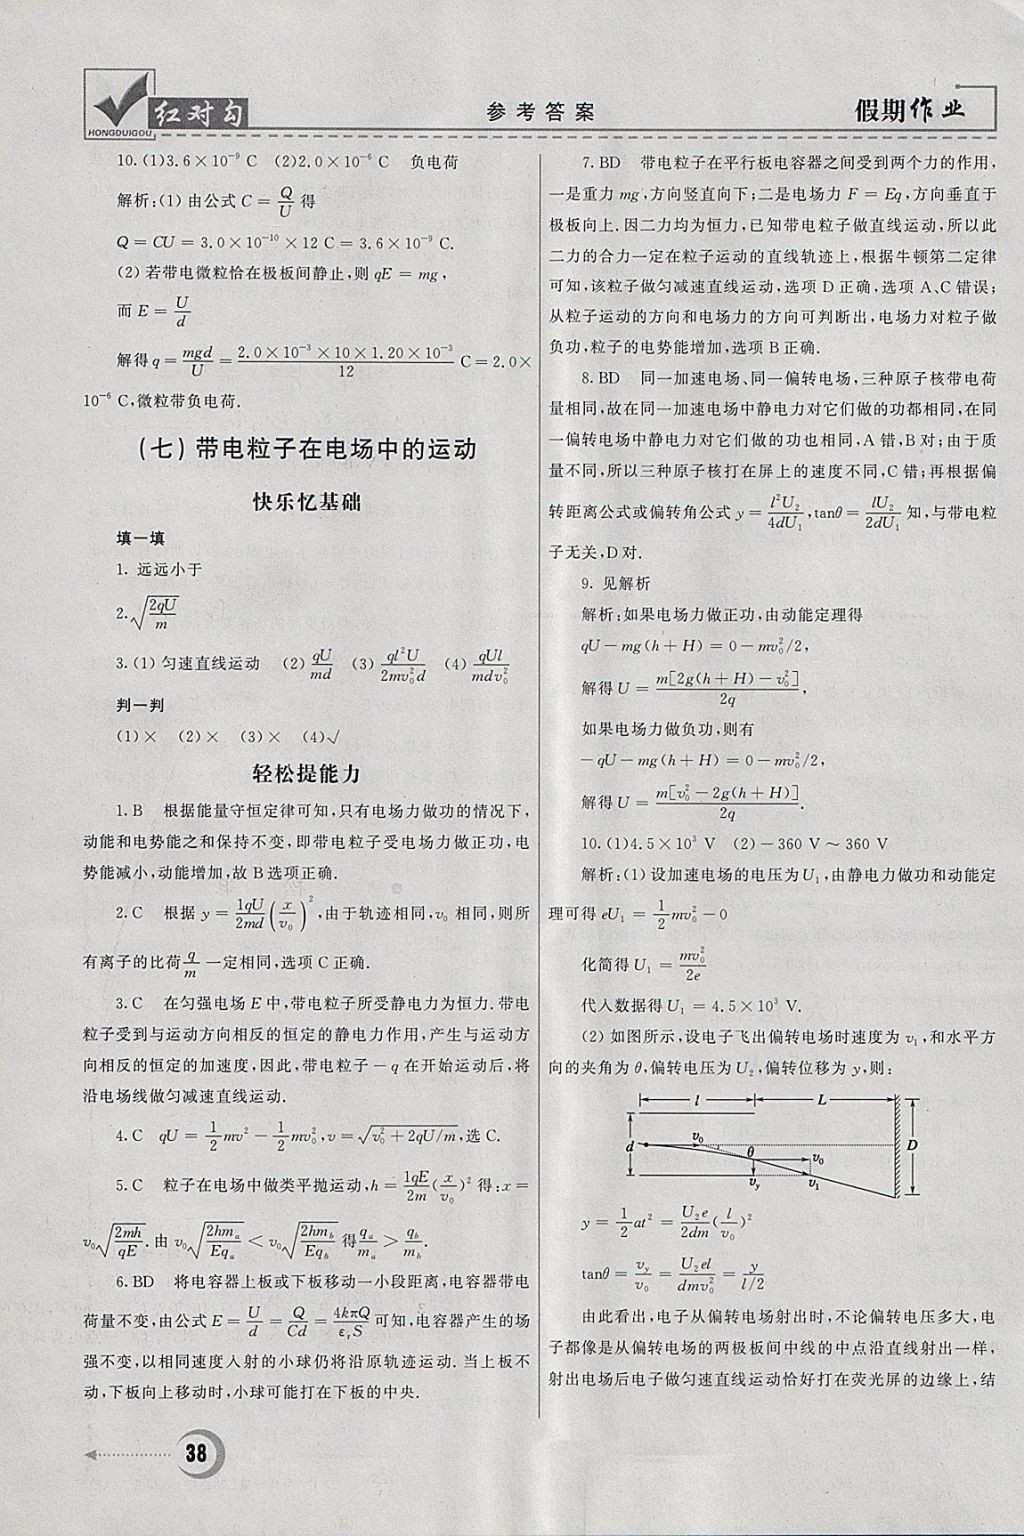 红对勾
HONGDUIGOU
参考答案
假期作业
10.(1)3.6×10⁻⁹ C (2)2.0×10⁻⁶ C 负电荷
解析:(1)由公式C=Q/U得
Q=CU=3.0×10⁻¹⁰×12 C=3.6×10⁻⁹ C.
(2)若带电微粒恰在极板间静止,则qE=mg,
而E=U/d
解得q=mgd/U=(2.0×10⁻³×10×1.20×10⁻³)/12 C=2.0×
10⁻⁶ C,微粒带负电荷.
(七)带电粒子在电场中的运动
快乐忆基础
填一填
1. 远远小于
2.√(2qU/m)
3.(1)匀速直线运动 (2)qU/md (3)ql²U/2mv₀²d (4)qUl/mdv₀²
判一判
(1)× (2)× (3)× (4)√
轻松提能力
1.B 根据能量守恒定律可知,只有电场力做功的情况下,
动能和电势能之和保持不变,即带电粒子受电场力做正功,电
势能减小,动能增加,故B选项正确.
2.C 根据y=1qU/2md(x/v₀)²,由于轨迹相同,v₀相同,则所
有离子的比荷q/m一定相同,选项C正确.
3.C 在匀强电场E中,带电粒子所受静电力为恒力.带电
粒子受到与运动方向相反的恒定的静电力作用,产生与运动方
向相反的恒定的加速度,因此,带电粒子-q在开始运动后,将
沿电场线做匀减速直线运动.
4.C qU=1/2mv²-1/2mv₀²,v=√(v₀²+2qU/m),选C.
5.C 粒子在电场中做类平抛运动,h=1qE/2m(x/v₀)²得:x=
v₀√(2mh/qE).由v₀√(2hmₐ/Eqₐ)<v₀√(2hm_b/Eq_b)得qₐ/mₐ>q_b/m_b.
6.BD 将电容器上板或下板移动一小段距离,电容器带电
荷量不变,由公式E=U/d=Q/Cd=4kπQ/εᵣS可知,电容器产生的场
强不变,以相同速度入射的小球仍将沿原轨迹运动.当上板不
动,下板向上移动时,小球可能打在下板的中央.
7.BD 带电粒子在平行板电容器之间受到两个力的作用,
一是重力mg,方向竖直向下;二是电场力F=Eq,方向垂直于
极板向上.因二力均为恒力,已知带电粒子做直线运动,所以此
二力的合力一定在粒子运动的直线轨迹上,根据牛顿第二定律
可知,该粒子做匀减速直线运动,选项D正确,选项A、C错误;
从粒子运动的方向和电场力的方向可判断出,电场力对粒子做
负功,粒子的电势能增加,选项B正确.
8.BD 同一加速电场、同一偏转电场,三种原子核带电荷
量相同,故在同一加速电场中静电力对它们做的功都相同,在同
一偏转电场中静电力对它们做的功也相同,A错,B对;由于质
量不同,所以三种原子核打在屏上的速度不同,C错;再根据偏
转距离公式或偏转角公式y=l²U₂/4dU₁,tanθ=lU₂/2dU₁知,与带电粒
子无关,D对.
9. 见解析
解析:如果电场力做正功,由动能定理得
qU-mg(h+H)=0-mv₀²/2,
解得U=m[2g(h+H)-v₀²]/2q,
如果电场力做负功,则有
-qU-mg(h+H)=0-mv₀²/2,
解得U=m[v₀²-2g(h+H)]/2q.
10.(1)4.5×10³ V (2)-360 V~360 V
解析:(1)设加速电场的电压为U₁,由静电力做功和动能定
理可得eU₁=1/2mv₀²-0
化简得U₁=mv₀²/2e
代入数据得U₁=4.5×10³ V.
(2)如图所示,设电子飞出偏转电场时速度为v₁,和水平方
向的夹角为θ,偏转电压为U₂,偏转位移为y,则:
l L
d v₀ θ v₀ D
v_y v₁
y=1/2at²=U₂e/2dm(l/v₀)²
tanθ=v_y/v₀=U₂el/dmv₀²=y/(l/2)
由此看出,电子从偏转电场射出时,不论偏转电压多大,电
子都像是从偏转电场的两极板间中线的中点沿直线射出一样,
射出电场后电子做匀速直线运动恰好打在荧光屏的边缘上,结
38